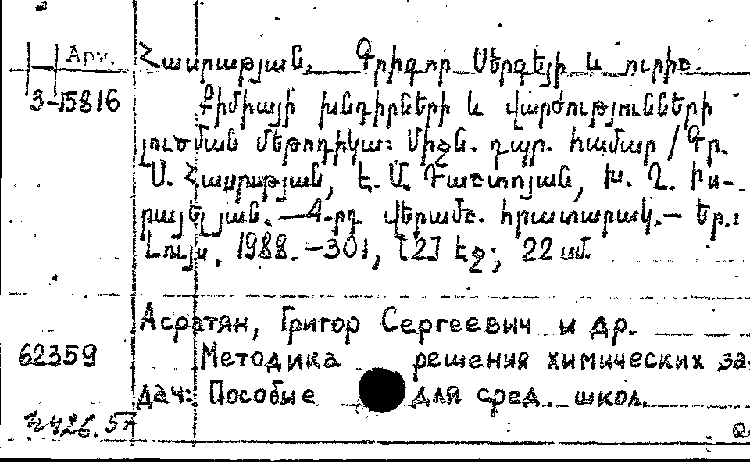 Арм. Հասրաթյան, Գրիգոր Սերգեյի և ուրիշ.
3-15816 Քիմիայի խնդիրների և վարժությունների
լուծման մեթոդիկա: Միջն. դպր. համար / Գր.
Ս. Հասրաթյան, Է. Մ. Դաշտոյան, Խ. Հ. Իս-
րայելյան. — 4-րդ վերամշ. հրատարակ. — Եր.:
Լույս, 1988. — 301, [2] էջ; 22 սմ.
Асратян, Григор Сергеевич и др.
62359 Методика решения химических за-
дач: Пособые для сред. школ.